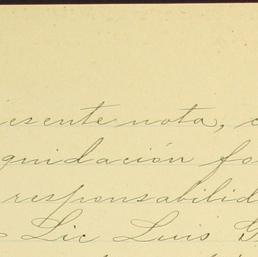 esente nota, c
quidación fo
responsabilid
Lic Luis G